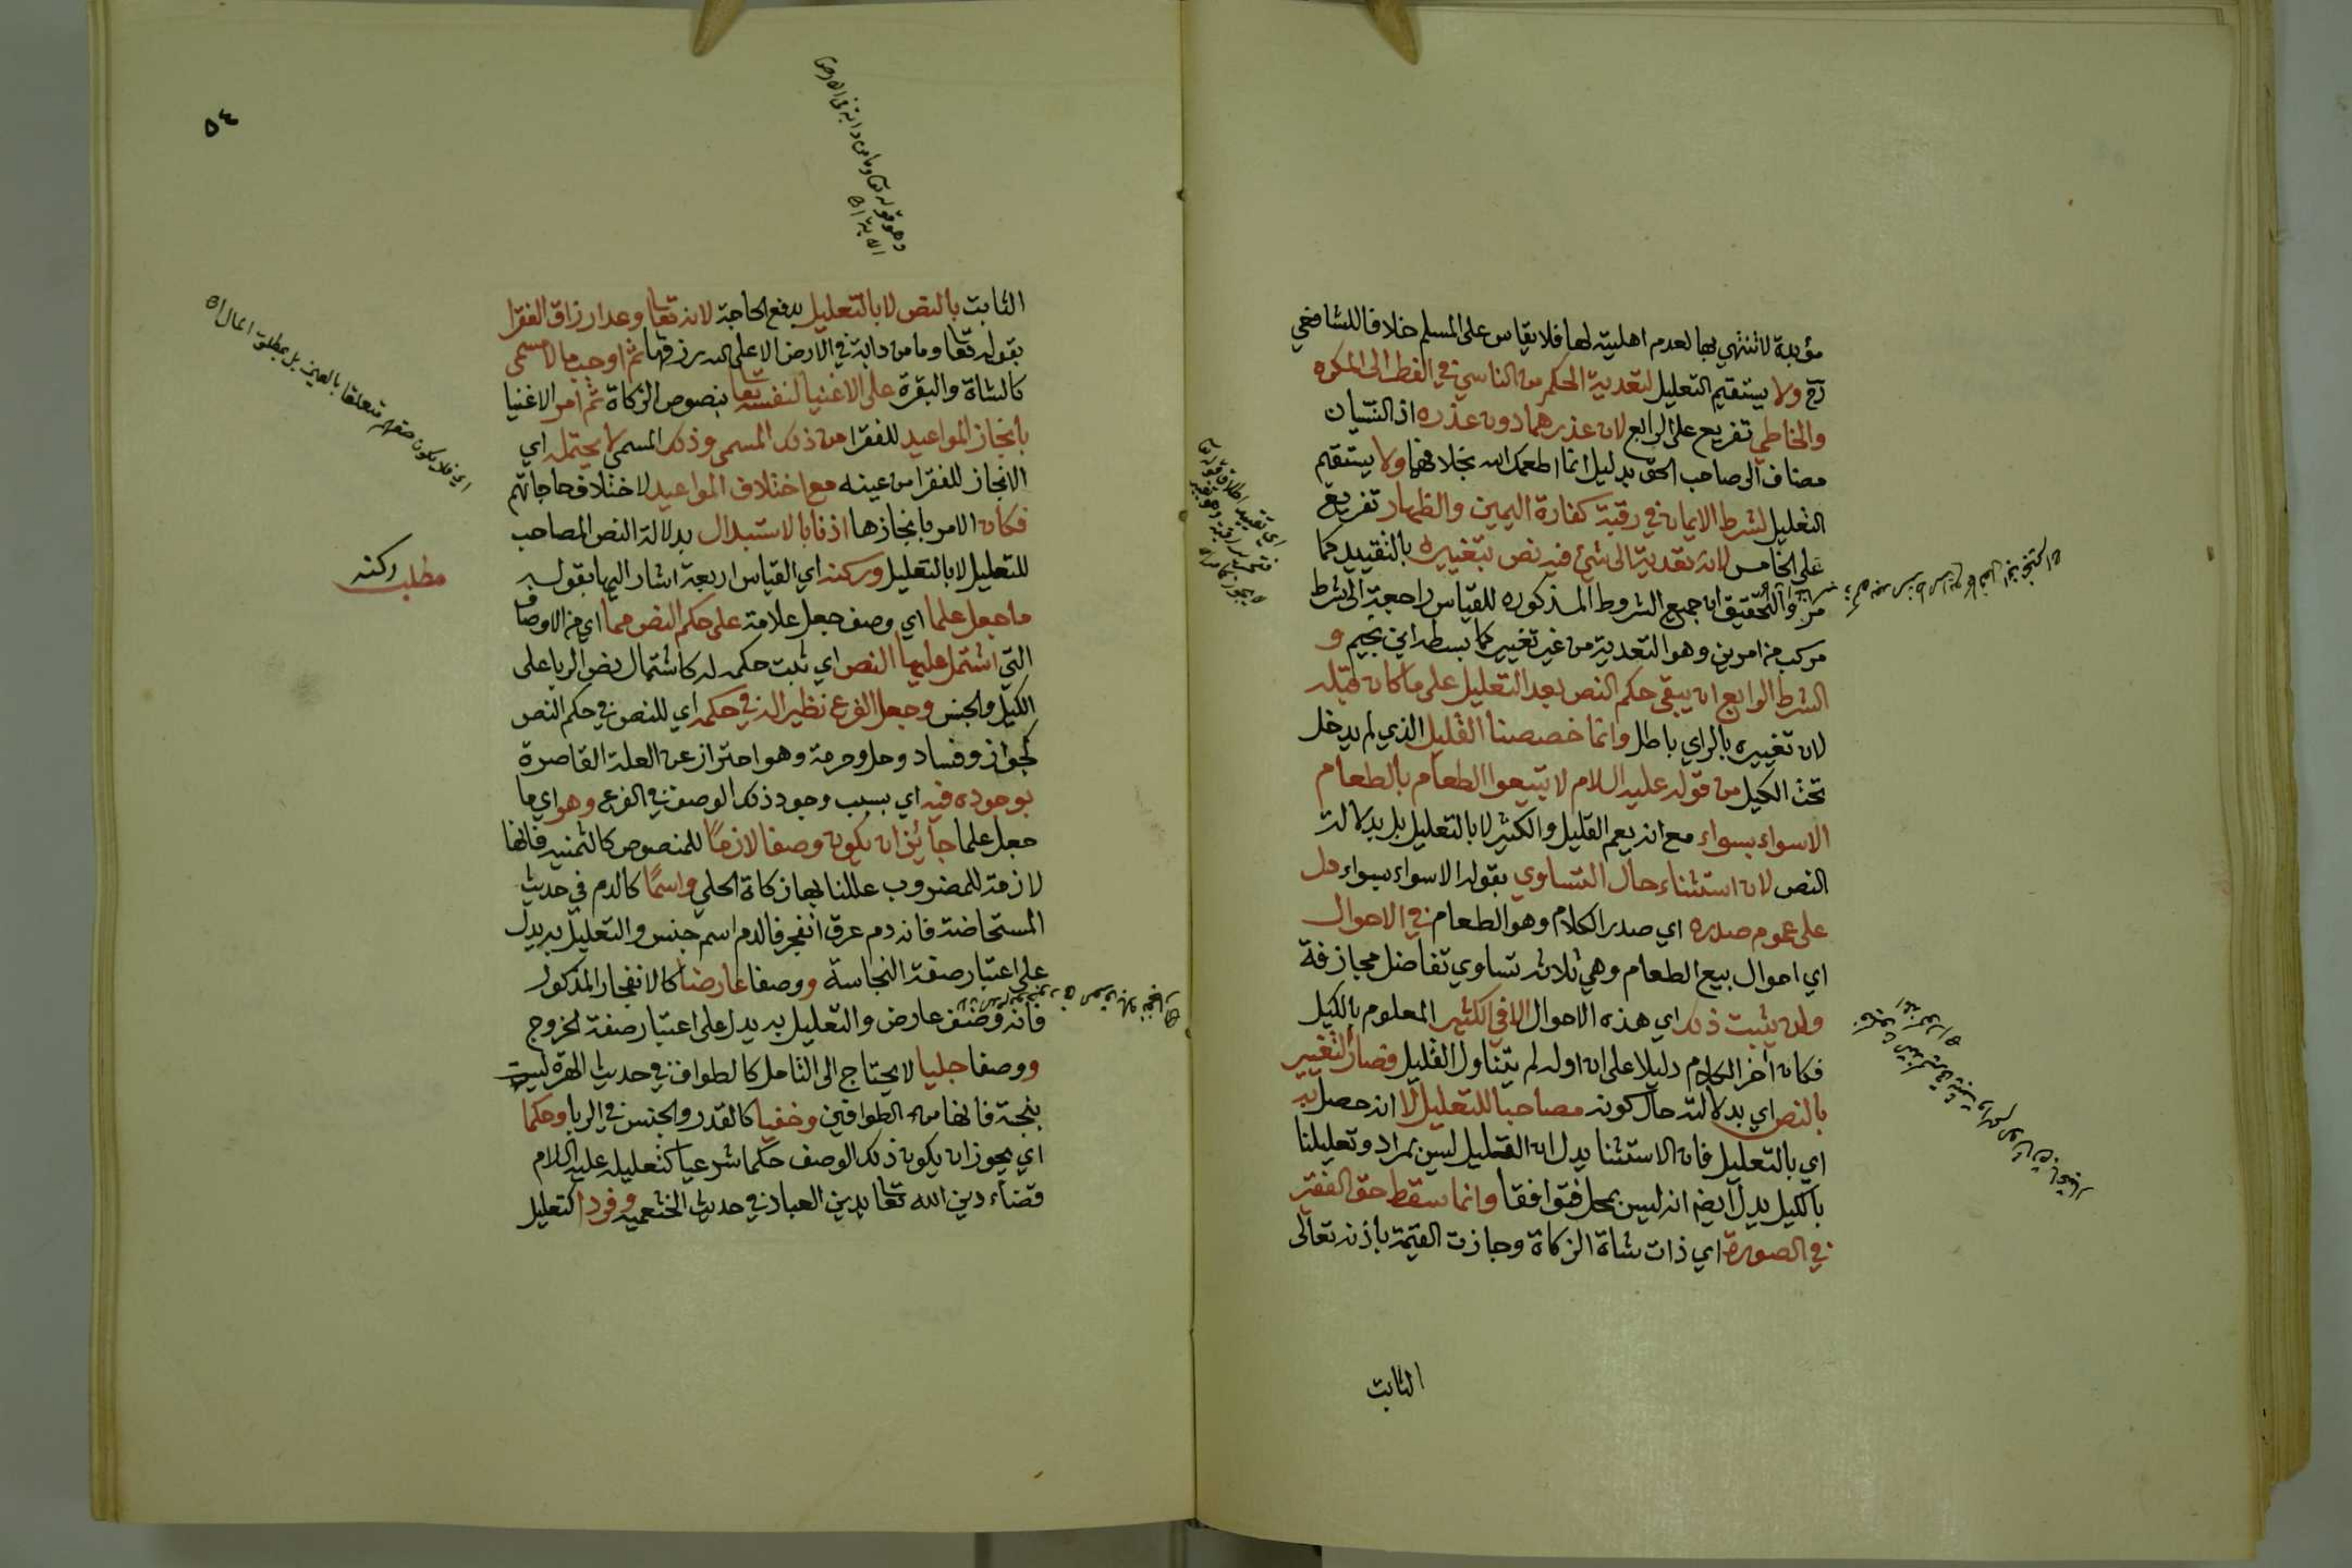 مؤبدة لا تنتهي بها لعدم اهليته لها فلا يقاس على المسلم خلافا للشافعي
رح ولا يستقيم التعليل لتعدية الحكم من الناسي في الفطر الى المكره
والخاطي تفريع على الرابع لان عذرهما دون عذره اذ النسيان
مضاف الى صاحب الحق بدليل انما اطعمك الله بخلافهما ولا يستقيم
التعليل لشرط الايمان في رقبة كفارة اليمين والظهار تفريع
على الخامس لانه تعدية الى شئ فيه نص بتغييره بالتقييد كما
مر والتحقيق ان جميع الشروط المذكوره للقياس راجعة الى شرط
مركب من امرين وهو التعدية من غير تغيير كما بسطه ابن نجيم و
الشرط الرابع ان يبقى حكم النص بعد التعليل على ما كان قبله
لان تغييره بالراي باطل وانما خصصنا القليل الذي لم يدخل
تحت الكيل من قوله عليه السلام لا تبيعوا الطعام بالطعام
الاسواء بسواء مع انه يعم القليل والكثير لا بالتعليل بل بدلالة
النص لان استثناء حال التساوي بقوله الاسواء بسواء دل
على عموم صدره اي صدر الكلام وهو الطعام في الاحوال
اي احوال بيع الطعام وهي ثلاثة تساوي تفاضل مجازفة
ولن يثبت ذلك اي هذه الاحوال الا في الكثير المعلوم بالكيل
فكان آخر الكلام دليلا على ان اوله لم يتناول القليل فصار التغيير
بالنص اي بدلالته حال كونه مصاحبا للتعليل لا انه حصل به
اي بالتعليل فان الاستثنا يدل ان القليل ليس بمراد وتعليلنا
بالكيل يدل ايضا انه ليس بمحل فتوافقا وانما سقط حق الفقير
في الصورة اي ذات شاة الزكاة وجازت القيمة باذنه تعالى
الثابت
٥٤
وهو قوله تعا وما من دابة في الارض
الآية اه
الثابت بالنص لا بالتعليل بدفع الحاجة لانه تعا وعد ارزاق الفقرا
بقوله تعا وما من دابة في الارض الا على الله رزقها ثم اوجب مالا مسمى
كالشاة والبقرة على الاغنيا لنفسه تعا بنصوص الزكاة ثم امر الاغنيا
بانجاز المواعيد للفقرا من ذلك المسمى وذلك المسمى لا يحتمله اي
الانجاز للفقرا من عينه مع اختلاف المواعيد لاختلاف حاجاتهم
فكان الامر بانجازها اذنا بالاستبدال بدلالة النص المصاحب
للتعليل لا بالتعليل وركنه اي القياس اربعة اشار اليها بقوله
ما جعل علما اي وصف جعل علامة على حكم النص مما اي من الاوصاف
التي اشتمل عليها النص اي ثبت حكمه له كاشتمال نص الربا على
الكيل والجنس وجعل الفرع نظيرا له في حكمه اي للنص في حكم النص
كجواز وفساد وحل وحرمة وهو احتراز عن العلة القاصرة
بوجوده فيه اي بسبب وجود ذلك الوصف في الفرع وهو اي ما
جعل علما جائز ان يكون وصفا لازما للمنصوص كالثمنيه فانها
لازمة للمضروب عللنا بها زكاة الحلي واسما كالدم في حديث
المستحاضة فانه دم عرق انفجر فالدم اسم جنس والتعليل به يدل
على اعتبار صفة النجاسة ووصفا عارضا كالانفجار المذكور
فانه وصف عارض والتعليل به يدل على اعتبار صفة الخروج
ووصفا جليا لا يحتاج الى التامل كالطواف في حديث الهرة ليست
بنجسة فانها من الطوافين وخفيا كالقدر والجنس في الربا وحكما
اي يجوز ان يكون ذلك الوصف حكما شرعيا كتعليله عليه السلام
قضاء دين الله تعا بدين العباد في حديث الخثعميه وفردا كتعليل
اي فلا يكون حقهم متعلقا بالعين بل بمطلق المال اه
مطلب ركنه